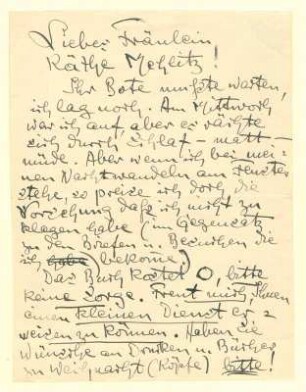 Liebes Fräulein
Käthe Mehlitz!
Ihr Bote mußte warten,
ich lag noch. Am Mittwoch
war ich auf, aber es rächte
sich durch Schlaf – matt –
müde. Aber wenn ich bei mei-
nen Nachtwandeln am Fenster
stehe, so preise ich doch die
Vorsehung daß ich nicht zu
klagen habe (im Gegensatz
zu den Briefen u. Besuchen die
ich habe bekome)
Das Buch kostet 0, bitte
keine Sorge. Freut mich, Ihnen
einen kleinen Dienst er-
weisen zu können. Haben Sie
Wünsche an Drucken u. Bücher
zu Weihnacht (Köpfe) bitte!